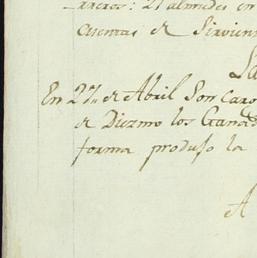 arreros: 21 almudes en
Cuentas de Sirvien
En 27,, de Abril Son Caro
de Diezmo los Ganad
forma produjo la
A